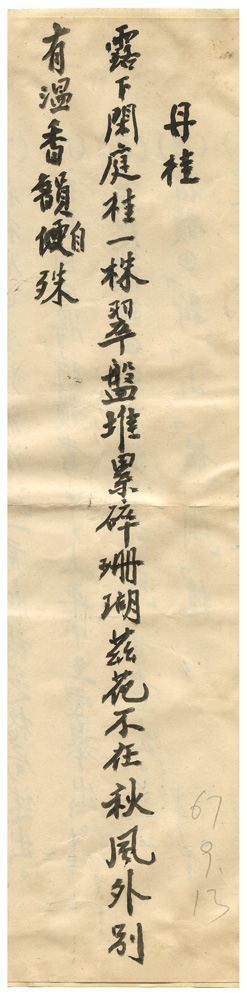 丹桂
露下閑庭桂一株翠盤堆累碎珊瑚茲花不在秋風外別
有溫香韻自殊
67.9.13